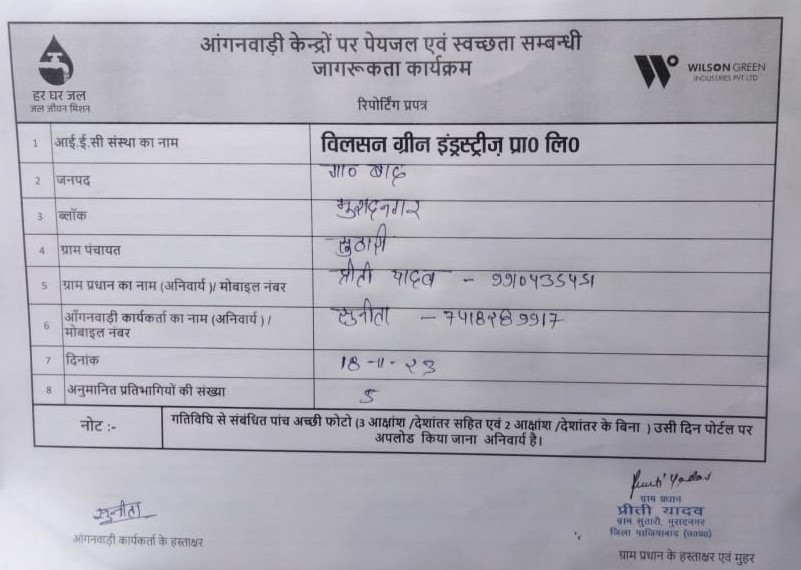 आंगनवाड़ी केन्द्रों पर पेयजल एवं स्वच्छता सम्बन्धी
जागरूकता कार्यक्रम
हर घर जल
जल जीवन मिशन
WILSON GREEN
INDUSTRIES PVT LTD
रिपोर्टिंग प्रपत्र
1 आई.ई.सी संस्था का नाम विलसन ग्रीन इंड्रस्ट्रीज़ प्रा० लि०
2 जनपद गा० बाद
3 ब्लॉक मुरादनगर
4 ग्राम पंचायत सुठारी
5 ग्राम प्रधान का नाम (अनिवार्य )/ मोबाइल नंबर प्रीती यादव - 9910435451
6 आँगनवाड़ी कार्यकर्ता का नाम (अनिवार्य ) /
मोबाइल नंबर सुनीता -
7 दिनांक 18-11-23
8 अनुमानित प्रतिभागियों की संख्या 5
नोट :- गतिविधि से संबंधित पांच अच्छी फोटो (3 आक्षांश /देशांतर सहित एवं 2 आक्षांश /देशांतर के बिना ) उसी दिन पोर्टल पर
अपलोड किया जाना अनिवार्य है।
सुनीता
आंगनवाड़ी कार्यकर्ता के हस्ताक्षर
Preeti Yadav
ग्राम प्रधान
प्रीती यादव
ग्राम सुठारी, मुरादनगर
जिला गाजियाबाद (उ०प्र०)
ग्राम प्रधान के हस्ताक्षर एवं मुहर